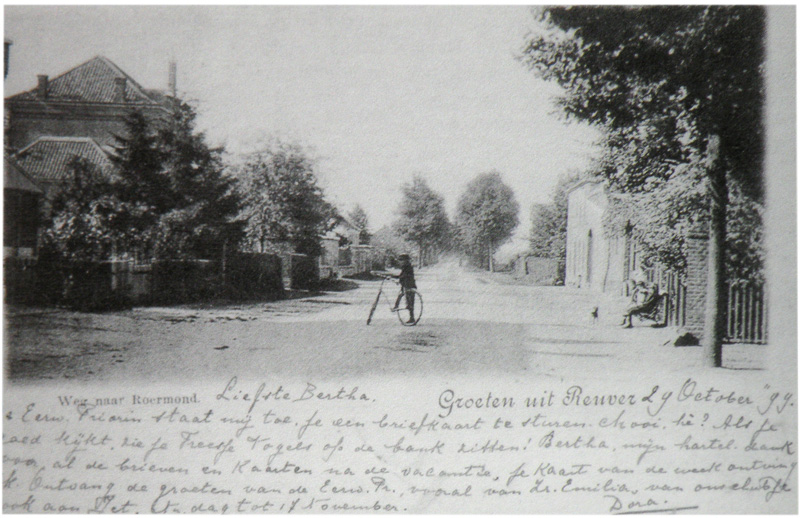 Weg naar Roermond. Liefste Bertha. Groeten uit Reuver 29 October '99.
Eerw. Priorin staat mij toe, je een briefkaart te sturen. Mooi, hè? Als je
goed kijkt, zie je Treesje Vogels op de bank zitten! Bertha, mijn hartel. dank
voor al de brieven en kaarten na de vacantie, je kaart van de week ontving
ik. Ontvang de groeten van de Eerw. Pr., vooral van Zr. Emilia, van ons clubje
ook aan Jet. Nu, dag tot 17 November. Dora.